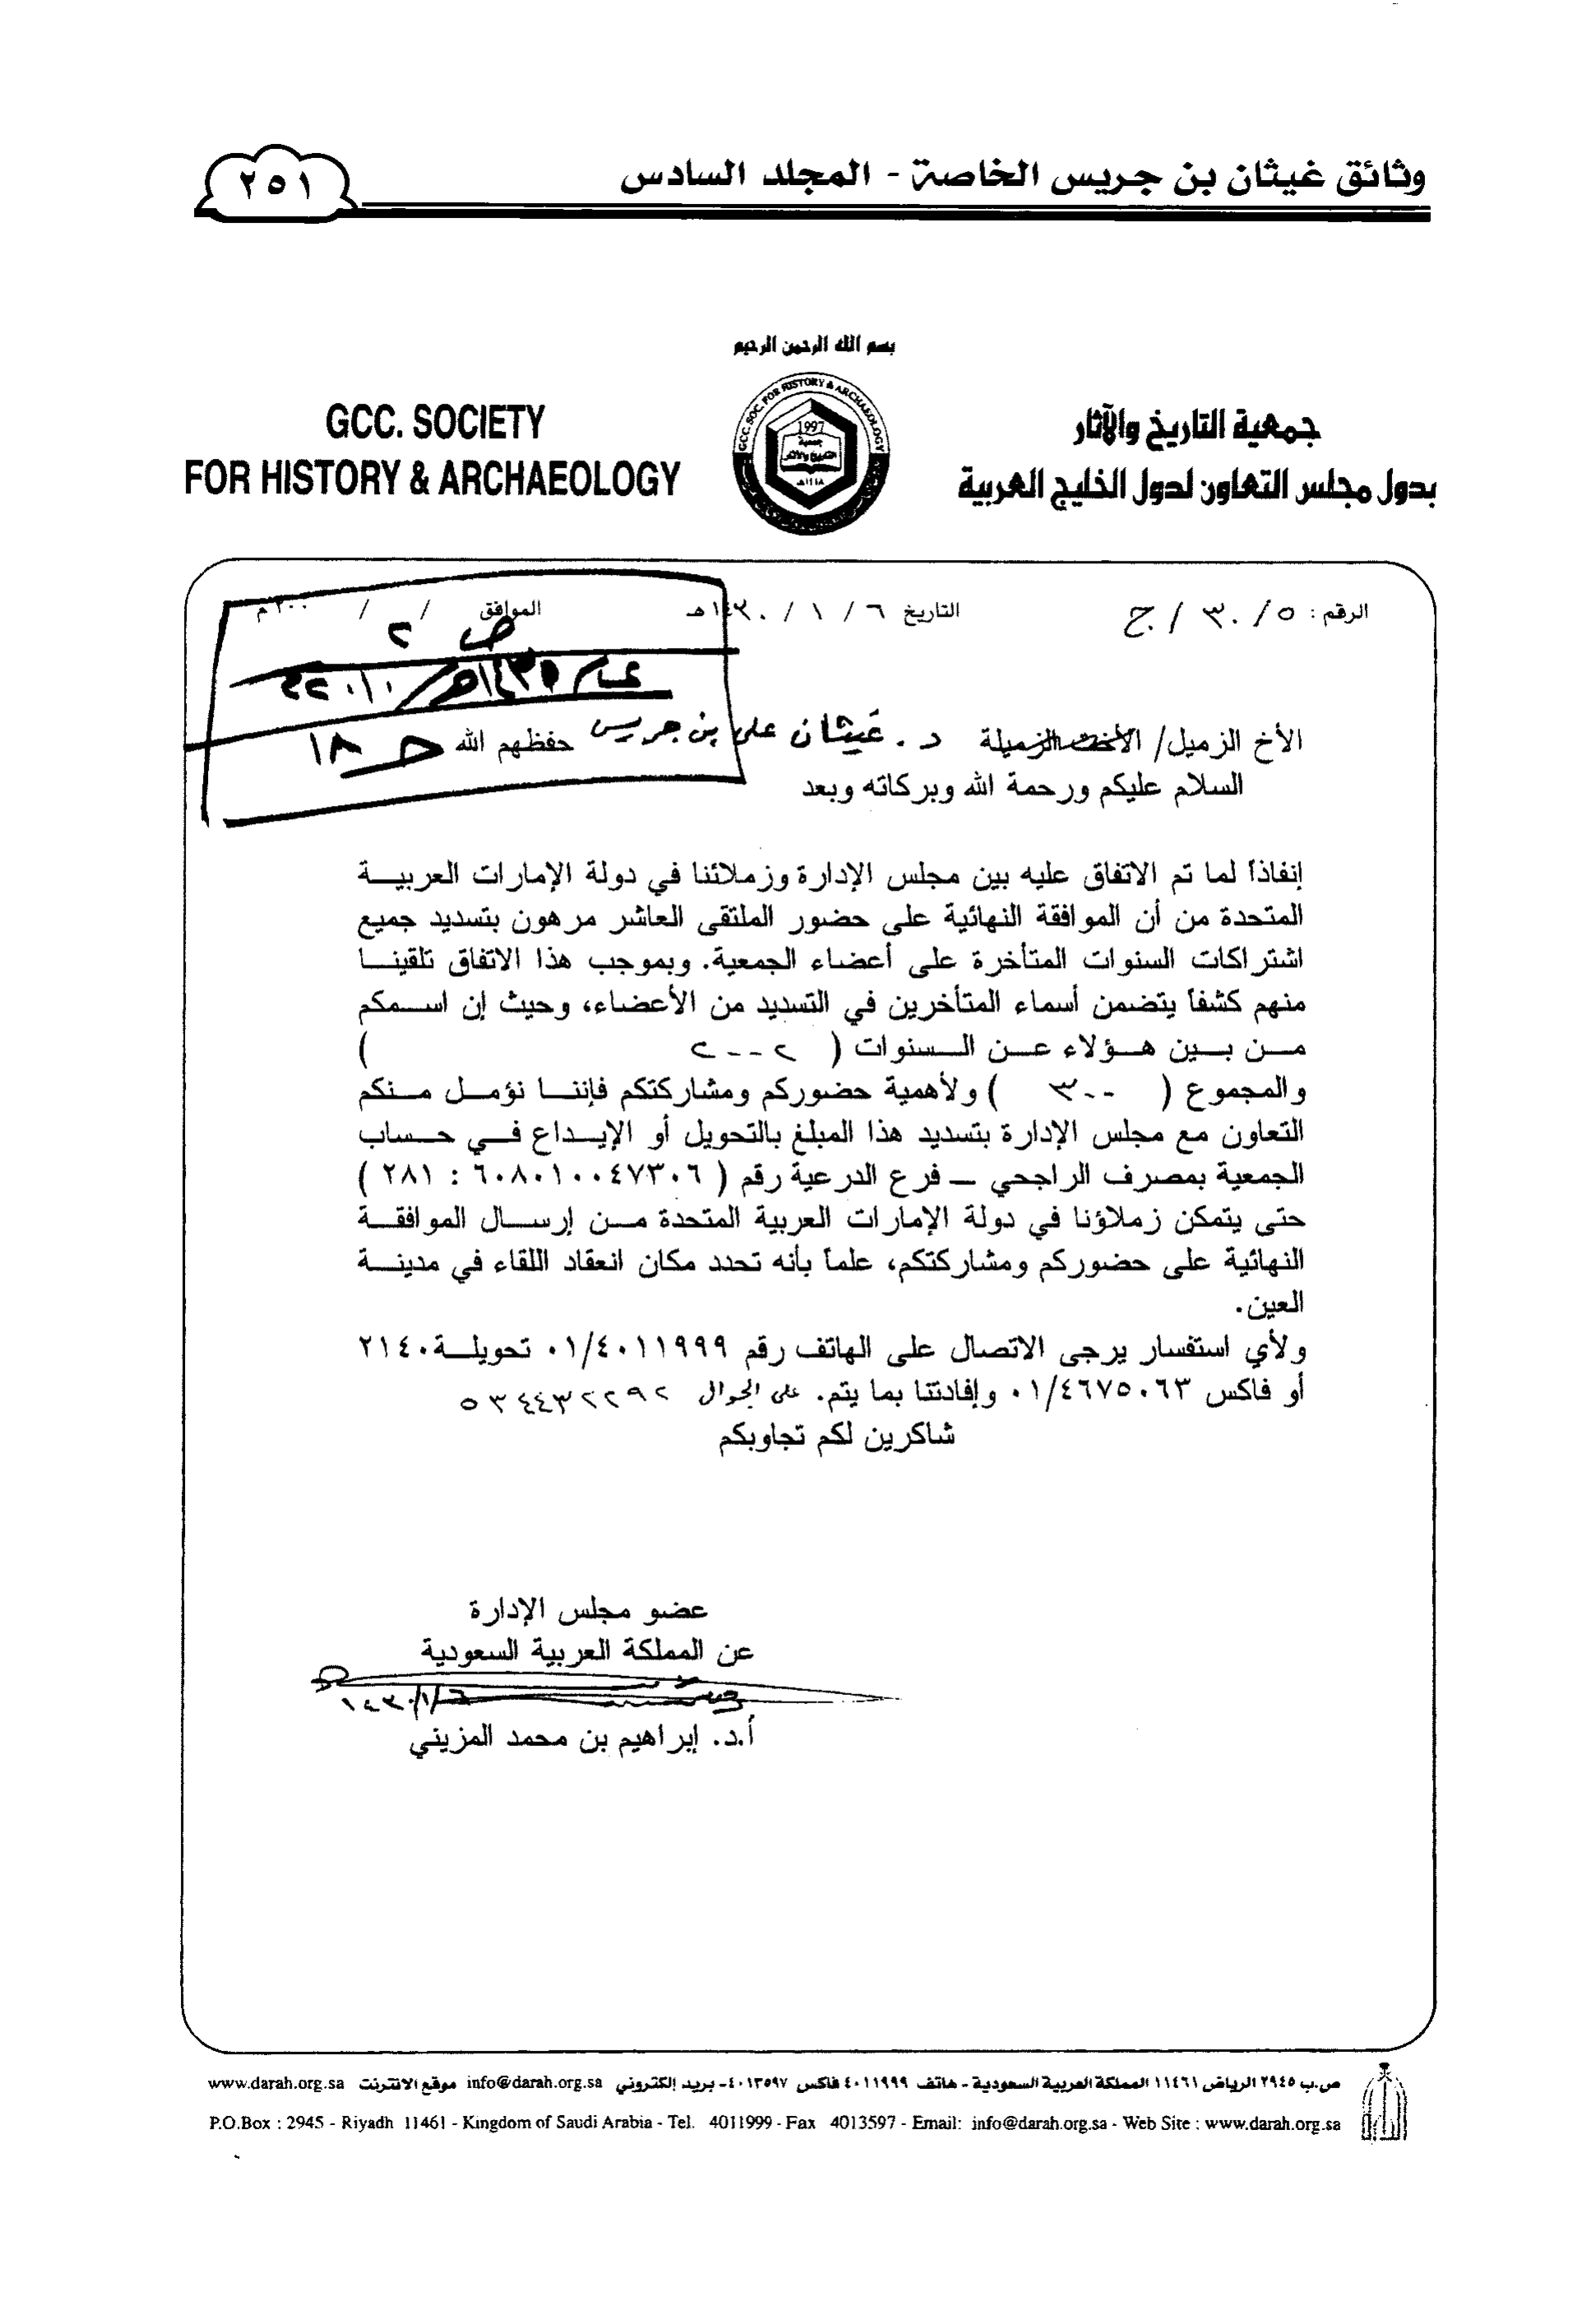 وثائق غيثان بن جريس الخاصة - المجلد السادس
٢٥١
بسم الله الرحمن الرحيم
جمعية التاريخ والآثار
بدول مجلس التعاون لدول الخليج العربية
GCC. SOCIETY
FOR HISTORY & ARCHAEOLOGY
GCC. SOC. FOR HISTORY & ARCHAEOLOGY
1997
الرقم : ٥ / ٣٠ / ج
التاريخ ٦ / ١ / ١٤٣٠هـ
الموافق / / ٢٠٠م
ص ٢
عام
ح ١٨
الأخ الزميل/ الأخت الزميلة د. غيثان علي بن جريس حفظهم الله
السلام عليكم ورحمة الله وبركاته وبعد
إنفاذا لما تم الاتفاق عليه بين مجلس الإدارة وزملائنا في دولة الإمارات العربيـــة
المتحدة من أن الموافقة النهائية على حضور الملتقى العاشر مرهون بتسديد جميع
اشتراكات السنوات المتأخرة على أعضاء الجمعية. وبموجب هذا الاتفاق تلقينـــا
منهم كشفاً يتضمن أسماء المتأخرين في التسديد من الأعضاء، وحيث إن اســـمكم
مـــن بـــين هـــؤلاء عـــن الـــسنوات ( )
والمجموع ( ٣٠٠ ) ولأهمية حضوركم ومشاركتكم فإننـــا نؤمـــل مـــنكم
التعاون مع مجلس الإدارة بتسديد هذا المبلغ بالتحويل أو الإيـــداع فـــي حـــساب
الجمعية بمصرف الراجحي – فرع الدرعية رقم ( ٦٠٨٠١٠٠٤٧٣٠٦ : ٢٨١ )
حتى يتمكن زملاؤنا في دولة الإمارات العربية المتحدة مـــن إرســـال الموافقـــة
النهائية على حضوركم ومشاركتكم، علماً بأنه تحدد مكان انعقاد اللقاء في مدينـــة
العين.
ولأي استفسار يرجى الاتصال على الهاتف رقم ٠١/٤٠١١٩٩٩ تحويلـــة٢١٤٠
أو فاكس ٠١/٤٦٧٥٠٦٣ وإفادتنا بما يتم. على الجوال ٥٣٤٤٣٢٢٩٢
شاكرين لكم تجاوبكم
عضو مجلس الإدارة
عن المملكة العربية السعودية
١٤٣٠/١/٦
أ.د. إبراهيم بن محمد المزيني
ص.ب ٢٩٤٥ الرياض ١١٤٦١ المملكة العربية السعودية - هاتف ٤٠١١٩٩٩ فاكس ٤٠١٣٥٩٧- بريد إلكتروني info@darah.org.sa موقع الانترنت www.darah.org.sa
P.O.Box : 2945 - Riyadh 11461 - Kingdom of Saudi Arabia - Tel. 4011999 - Fax 4013597 - Email: info@darah.org.sa - Web Site : www.darah.org.sa